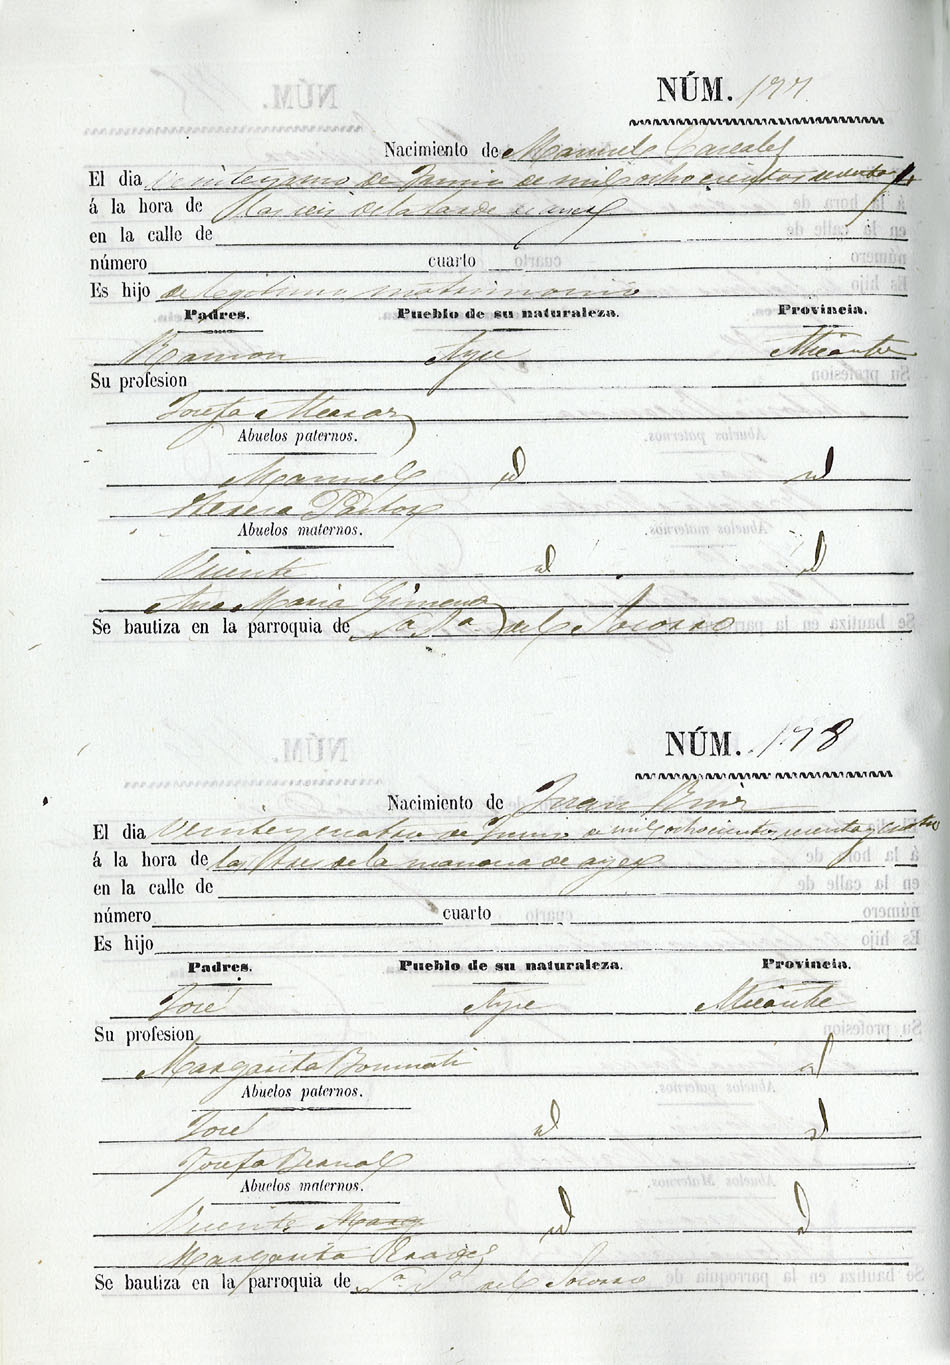 NÚM. 177
Nacimiento de Manuel
El dia veinteyuno de Junio de mil ochocientos
á la hora de las seis de la tarde de ayer
en la calle de
número cuarto
Es hijo de legítimo matrimonio
Padres. Pueblo de su naturaleza. Provincia.
Ramon Aspe Alicante
Su profesion
Josefa Alcaraz
Abuelos paternos.
Manuel id id
Teresa Pastor
Abuelos maternos.
Vicente id id
Ana Maria Gimenez
Se bautiza en la parroquia de Ntra Sra del Socorro
NÚM. 178
Nacimiento de Juan
El dia veinteycuatro de Junio de mil ochocientos sesenta y cuatro
á la hora de las tres de la manana de ayer
en la calle de
número cuarto
Es hijo
Padres. Pueblo de su naturaleza. Provincia.
José Aspe Alicante
Su profesion
Margarita Bonmati id
Abuelos paternos.
José id id
Josefa Bernal
Abuelos maternos.
Vicente id id
Margarita
Se bautiza en la parroquia de Ntra Sra del Socorro